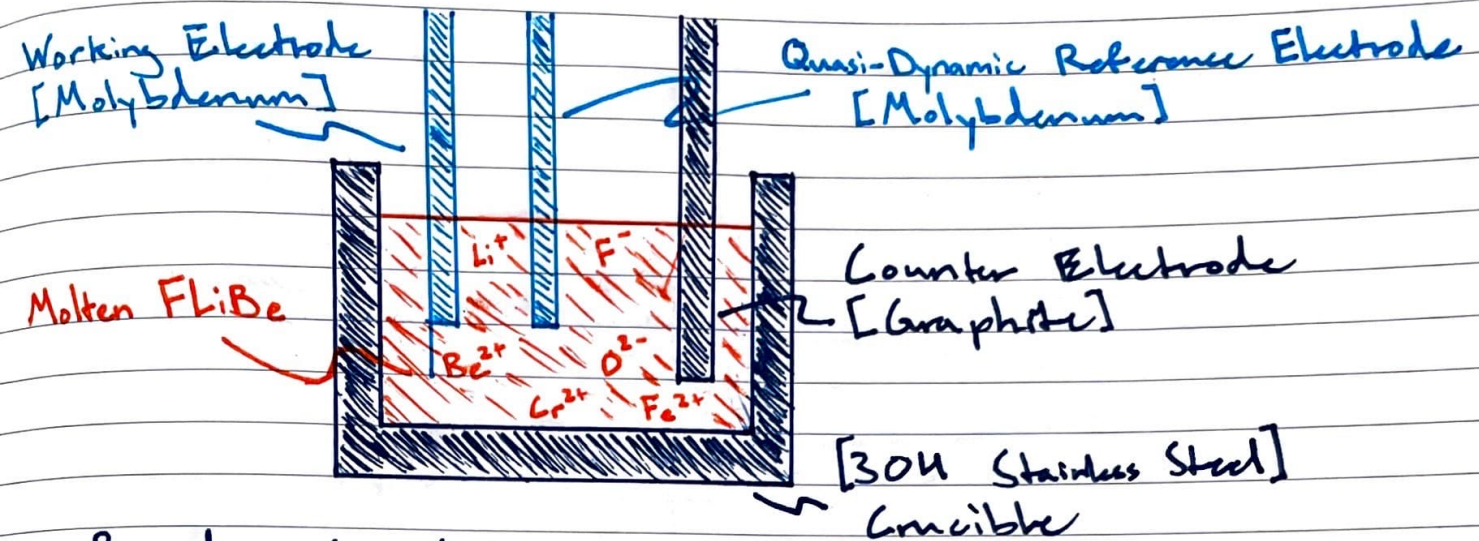 Working Electrode
[Molybdenum]
Quasi-Dynamic Reference Electrode
[Molybdenum]
Li⁺
F⁻
Molten FLiBe
Counter Electrode
[Graphite]
Be²⁺
O²⁻
Cr²⁺
Fe²⁺
[304 Stainless Steel]
Crucible